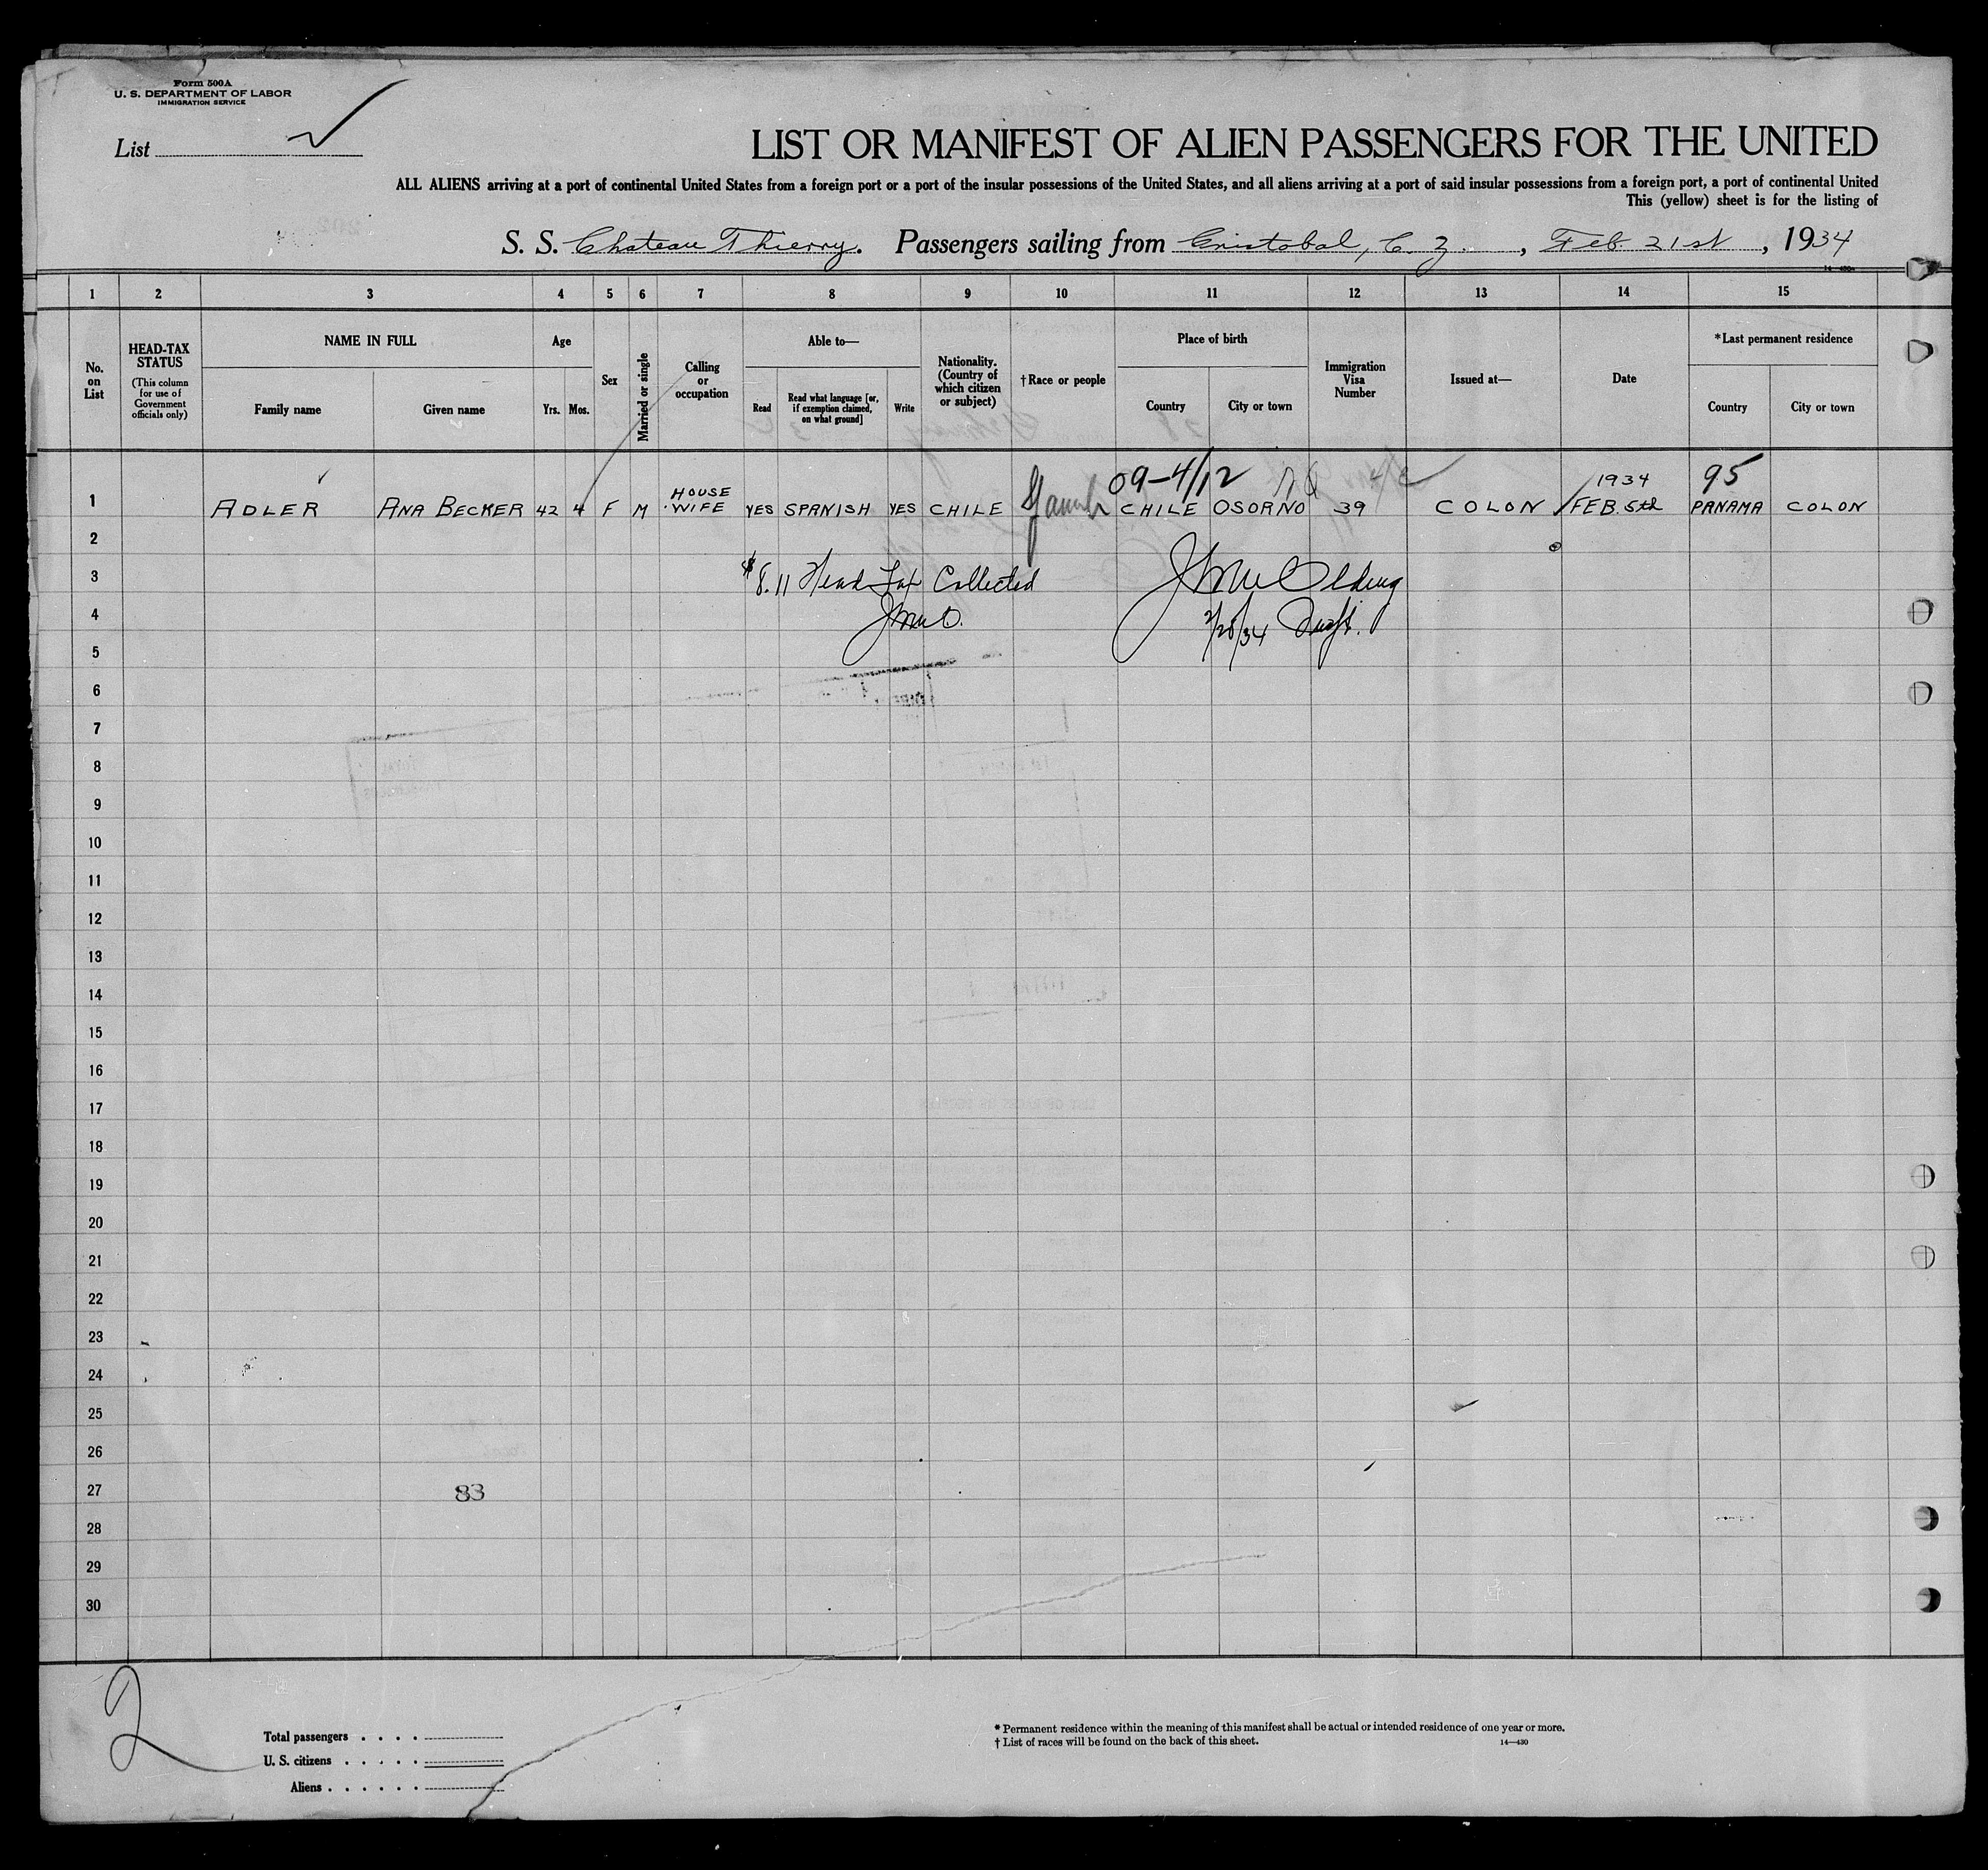 Form 500A
U. S. DEPARTMENT OF LABOR
IMMIGRATION SERVICE
List
LIST OR MANIFEST OF ALIEN PASSENGERS FOR THE UNITED
ALL ALIENS arriving at a port of continental United States from a foreign port or a port of the insular possessions of the United States, and all aliens arriving at a port of said insular possessions from a foreign port, a port of continental United
This (yellow) sheet is for the listing of
S. S. Chateau Thierry. Passengers sailing from Cristobal, C. Z., Feb 21st, 1934
1 2 3 4 5 6 7 8 9 10 11 12 13 14 15
No. on List
HEAD-TAX STATUS
(This column for use of Government officials only)
NAME IN FULL
Family name
Given name
Age
Yrs. Mos.
Sex
Married or single
Calling or occupation
Able to—
Read
Read what language [or, if exemption claimed, on what ground]
Write
Nationality. (Country of which citizen or subject)
† Race or people
Place of birth
Country
City or town
Immigration Visa Number
Issued at—
Date
*Last permanent residence
Country
City or town
09-4/12
1934
95
1 ADLER ANA BECKER 42 4 F M HOUSE WIFE YES SPANISH YES CHILE CHILE OSORNO 39 COLON FEB. 5th PANAMA COLON
2
3 $8.11 Head Tax Collected
4 2/28/34
5
6
7
8
9
10
11
12
13
14
15
16
17
18
19
20
21
22
23
24
25
26
27
83
28
29
30
2
Total passengers
U. S. citizens
Aliens
* Permanent residence within the meaning of this manifest shall be actual or intended residence of one year or more.
† List of races will be found on the back of this sheet.
14—430